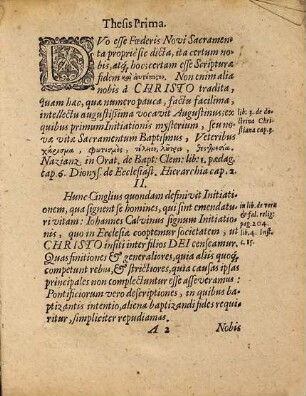 Thesis Prima.
DVo esse Fœderis Novi Sacramen-
ta propriè sic dicta, ita certum no-
bis, atq́, hoc certam esse Scripturæ
fidem καὶ ἀντίτυπον. Non enim alia
nobis à CHRISTO tradita,
quam hæc, quæ numero pauca, factu facilima,
intellectu augustissima vocavit Augustinus: ex lib: 3. de do-
quibus primum Initiationis mysterium, seu no- ctrina Chri-
væ vitæ Sacramentum Baptismus, Veteribus stiana cap. 9.
χάρισμα, φωτισμὸς, τέλειον, λουτρὸν
Nazianz. in Orat. de Bapt: Clem: lib: 1. pædag.
cap 6. Dionys de Ecclesiast. Hierarchia cap. 2
II.
Hunc Cinglius quondam definivit Initiati-
onem, qua signent se homines, qui sint emendatu- in lib. de vera
ri vitam: Iohannes Calvinus signum Initiatio- & fal. relig:
nis, quo in Ecclesiæ cooptemur societatem, ut pag 204.
CHRISTO insiti inter filios DEI censeamur. lib. 4. Inst.
Quas finitiones & generaliores, quia aliis quoq́, c. 15.
competunt rebus, & strictiores, quia causas ipsas
principales non complectuntur esse asseveramus:
Pontificiorum vero descriptiones, in quibus ba-
ptizantis intentio, aliena baptizandi fides requi-
ritur, simpliciter repudiamus.
A 2 Nobis